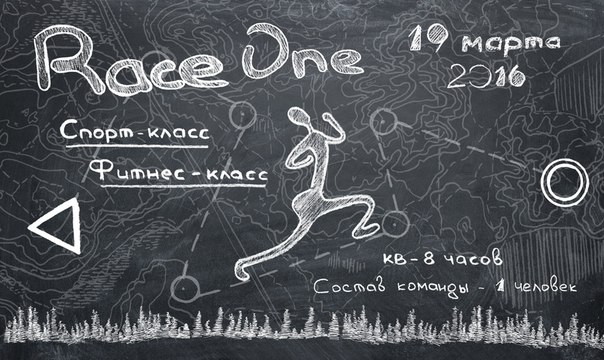 Race One
19 марта
2016
Спорт-класс
Фитнес-класс
кв-8 часов
Состав команды - 1 человек